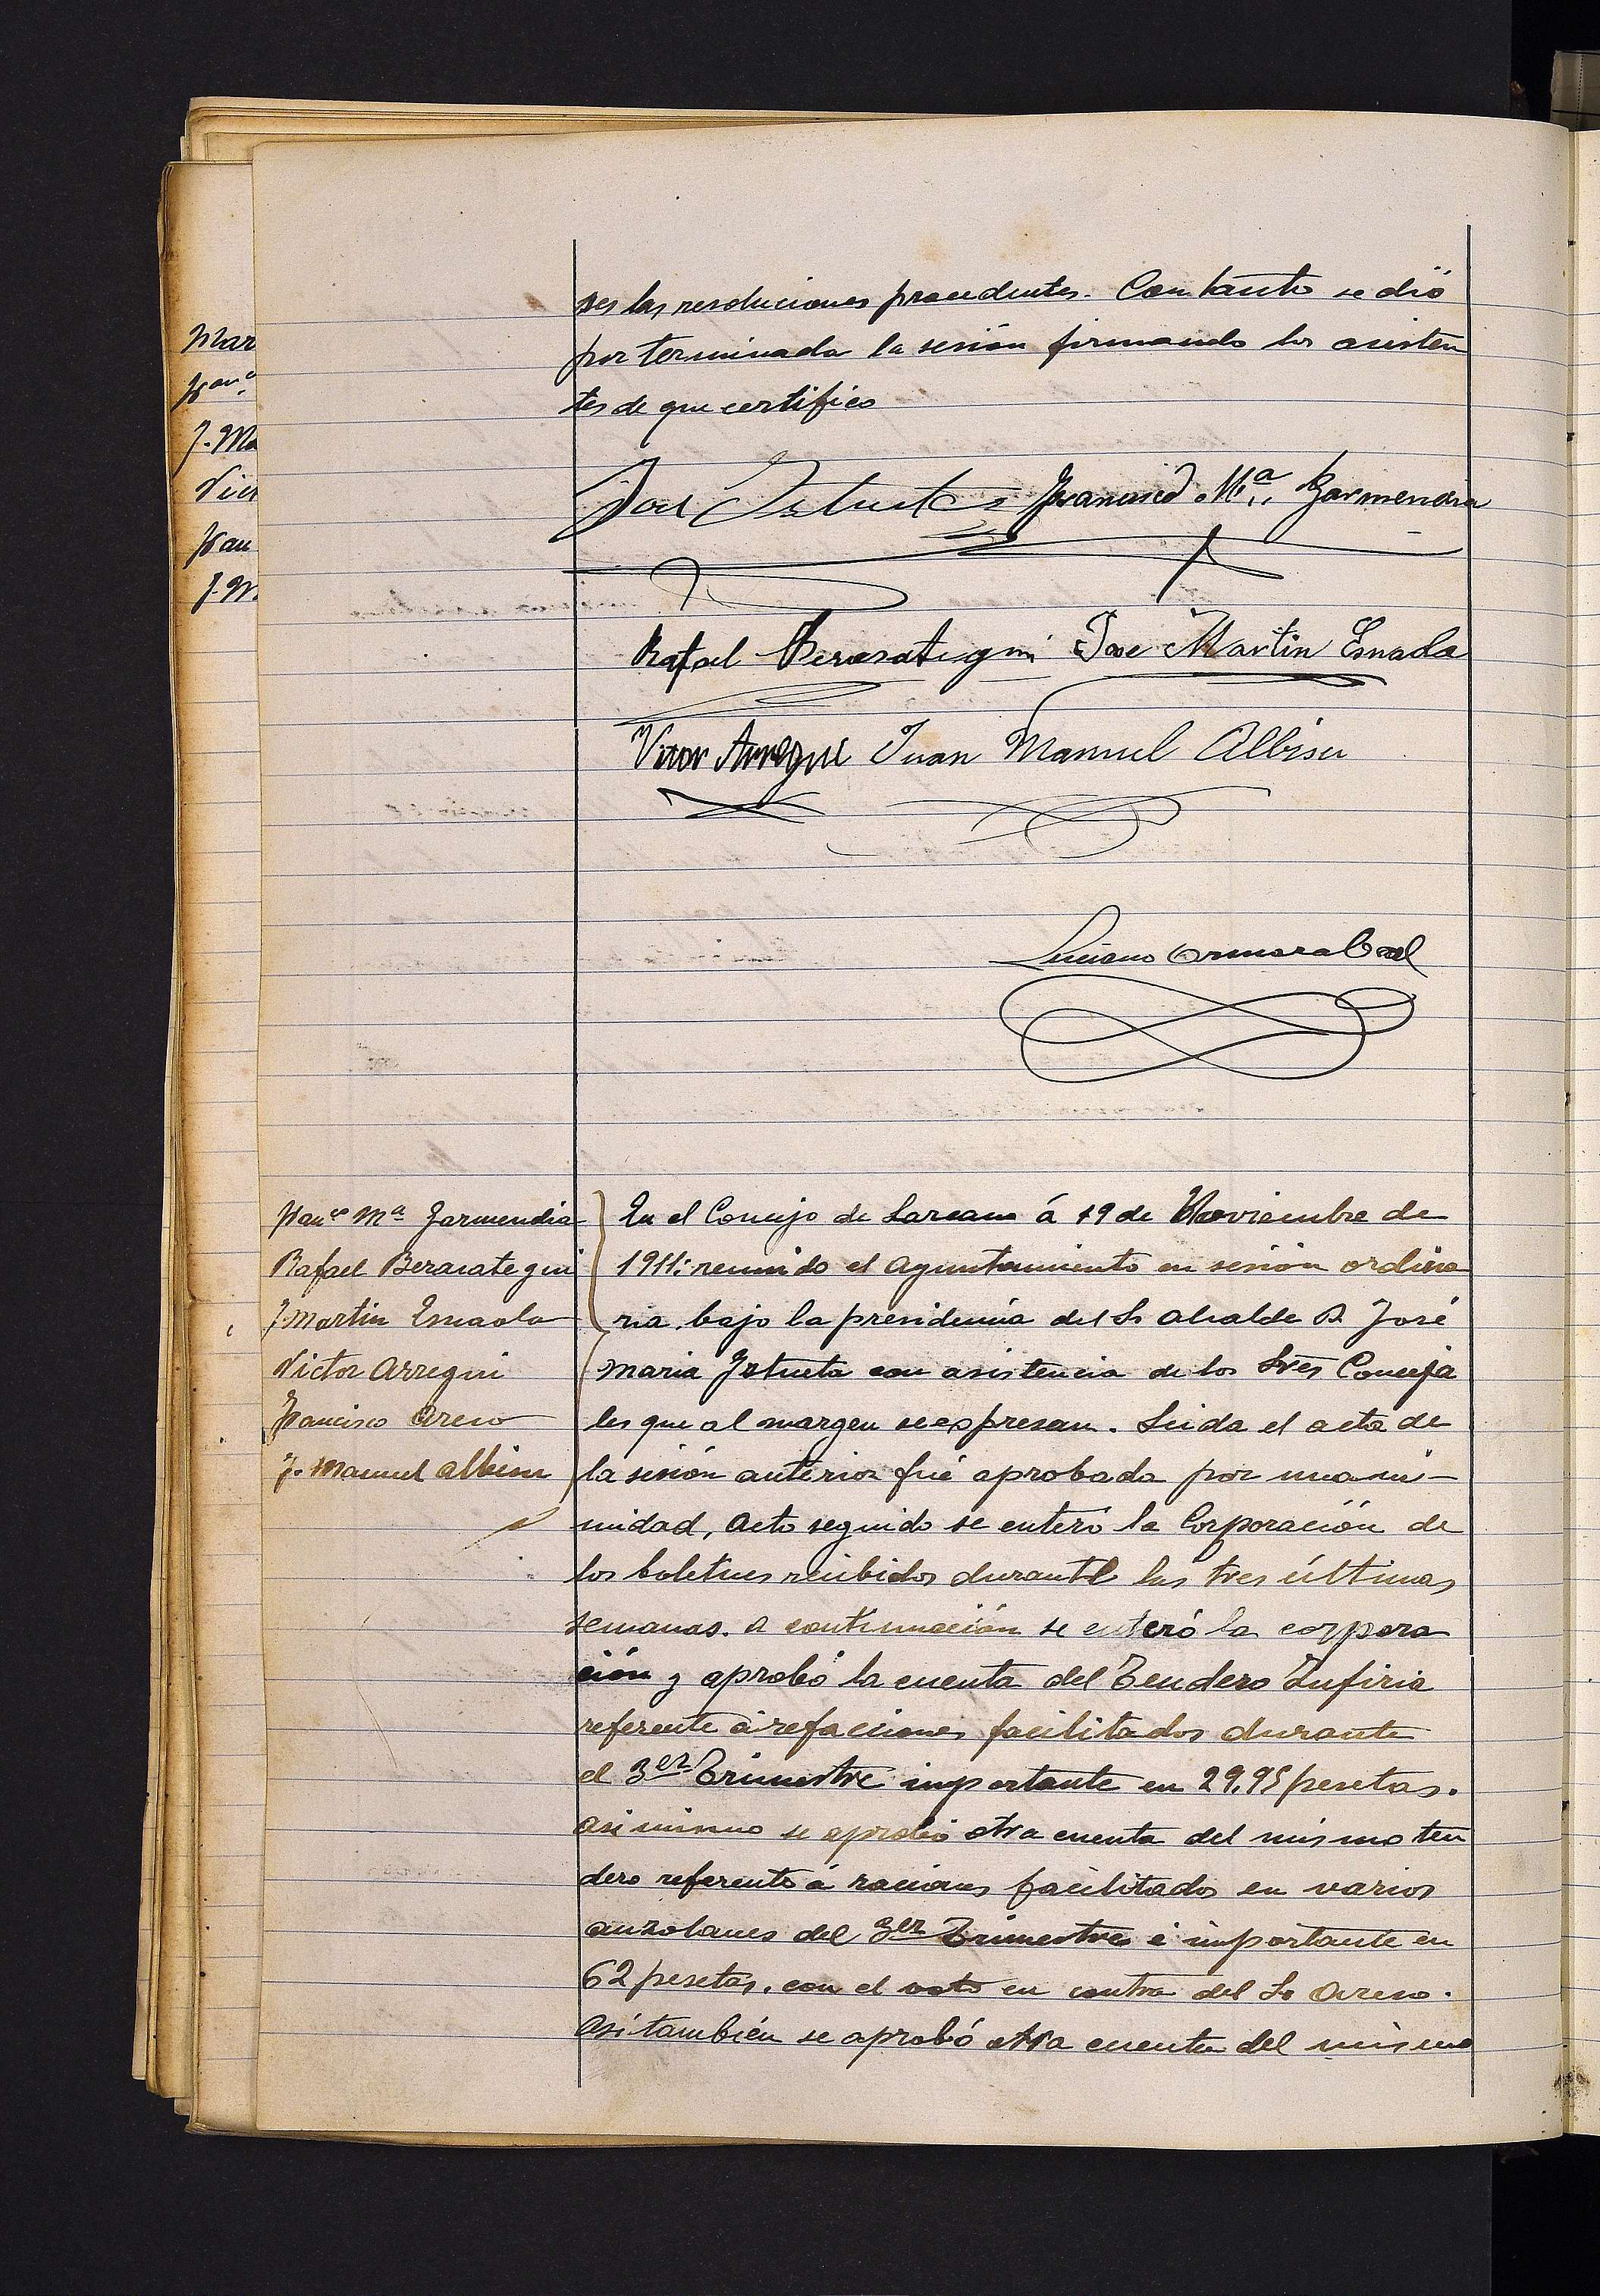 Mar
Fran.co
J. Ma
Vict
Fran
J. M.
nes las resoluciones procedentes. Con tanto se dió
por terminada la sesión firmando los asisten
tes de que certifico
José Iztueta Francisco M.ª Garmendia
Rafael Berasategui Jose Martin Esnaola
Vitor Arregui Juan Manuel Albisu
Luciano Ormazabal
Fran.co M.ª Garmendia
Rafael Berasategui
J. Martin Esnaola
Victor Arregui
Francisco Areso
J. Manuel Albisu
En el Concejo de Larcano á 19 de Noviembre de
1911: reunido el Ayuntamiento en sesión ordina
ria bajo la presidencia del Sr Alcalde D José
Maria Iztueta con asistencia de los Sres Conceja
les que al margen se expresan. Leida el acta de
la sesión anterior fué aprobada por unani-
midad, Acto seguido se enteró la Corporación de
los boletines recibidos durante las tres últimas
semanas. A continuación se enteró la corpora
ción y aprobó la cuenta del Tendero Zufiria
referente á refacciones facilitados durante
el 3er Trimestre importante en 29,95 pesetas.
Asimismo se aprobó otra cuenta del mismo ten
dero referente á raciones facilitados en varios
auzolanes del 3er Trimestre é importante en
62 pesetas, con el voto en contra del Sr Areso.
Así también se aprobó otra cuenta del mismo